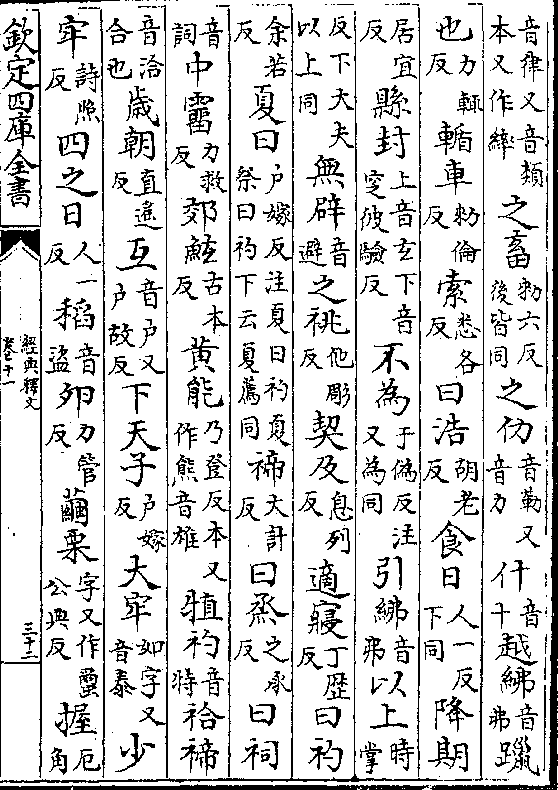 音律又音類本又作繂之畜勑六反後皆同之仂音勒又音力什音十越紼音弗躐
也力輒反輴車勑倫反索悉各反曰浩胡老反食日人一反下同降期
居宜反縣封上音玄下音窆彼驗反不為于偽反注又為同引紼音弗以上時掌
反下大夫以上同無辟音避之祧他彫反契及息列反適寢丁歴反曰礿
余若反夏曰户嫁反注夏曰礿夏祭曰礿下云夏薦同禘大計反曰烝之承反曰祠
音詞中霤力救反郊鮌古本反黄能乃登反本又作熊音雄犆礿音特祫禘
音洽合也歲朝直遥反互音户又户故反下天子户嫁反大牢如字又音泰少
牢詩照反四之日人一反稻音盗卵力管反繭栗字又作蠒公典反握厄角
欽定四庫全書
經典釋文
卷十一
三十二